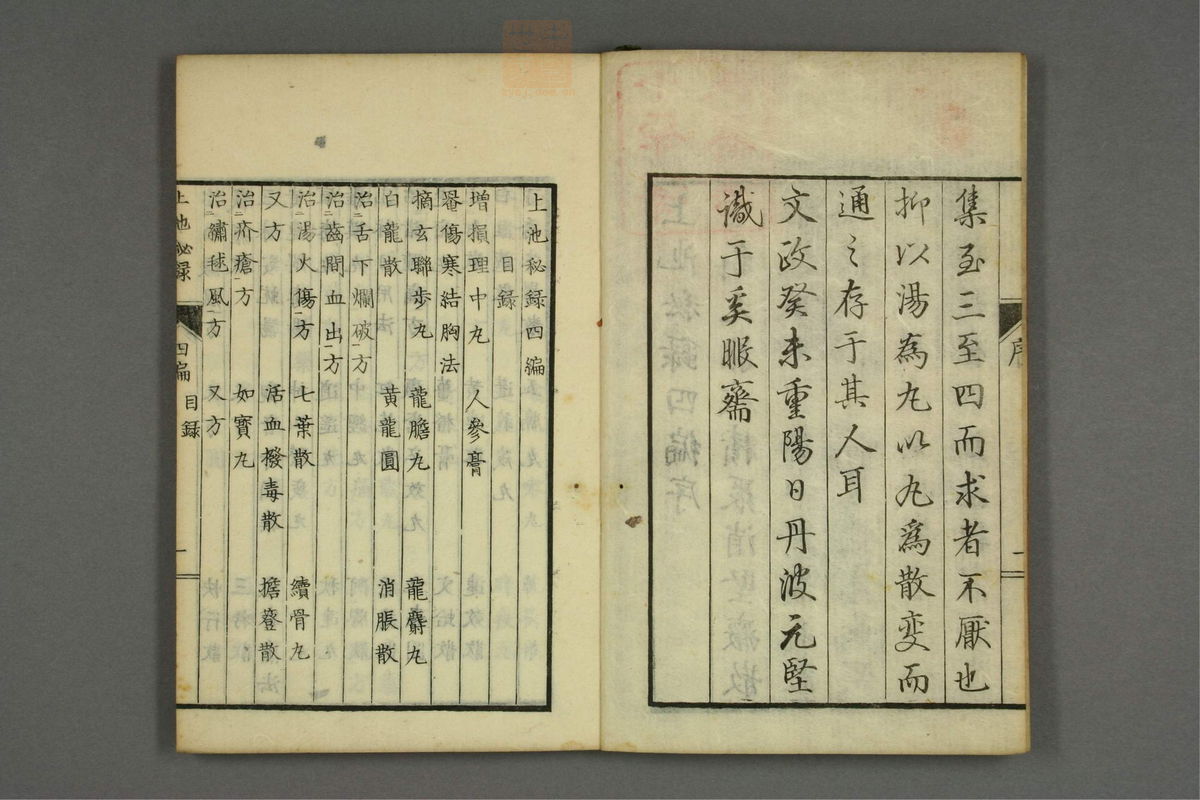 集至三至四而求者不厭也
抑以湯為丸以丸爲散變而
通之存于其人耳
文政癸未重陽日丹波元堅
識于奚暇齋
序
上池秘録四編
目録
增損理中丸 人參膏
罨傷寒結胸法
摘玄聯步丸 龍膽丸 龍麝丸
白龍散 黄龍圓 消脹散
治舌下爛破方
治齒間血出方
治湯火傷方 七葉散 續骨丸
又方 活血撥毒散 擔簦散
治疥瘡方 如寶丸
治繡毬風方 又方
上池秘録 四編 目録 一